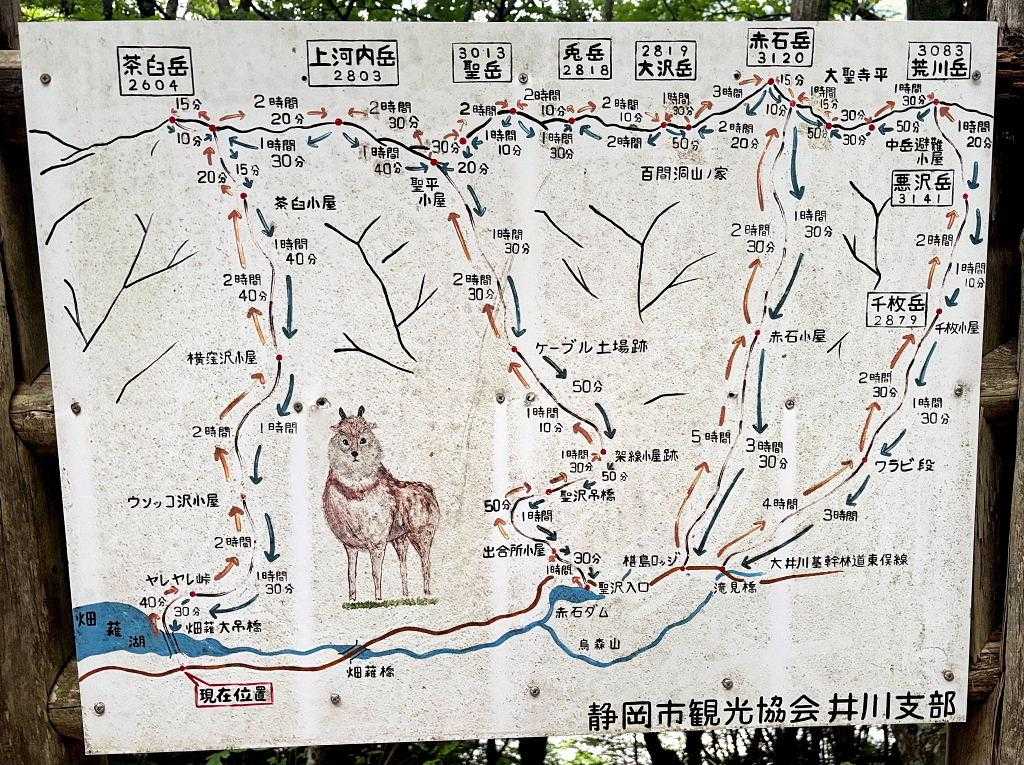 茶臼岳
2604
上河内岳
2803
3013
聖岳
兎岳
2818
2819
大沢岳
赤石岳
3120
大聖寺平
3083
荒川岳
15分
10分
2時間
20分
1時間
30分
2時間
30分
1時間
40分
30分
20分
2時間
10分
1時間
10分
2時間
10分
1時間
30分
2時間
10分
2時間
1時間
30分
50分
3時間
2時間
20分
15分
10分
1時間
15分
30分
30分
1時間
30分
50分
中岳避難
小屋
1時間
20分
悪沢岳
3141
2時間
1時間
10分
千枚岳
2879
千枚小屋
2時間
30分
1時間
30分
ワラビ段
4時間
3時間
百間洞山ノ家
2時間
30分
1時間
30分
赤石小屋
5時間
3時間
30分
椹島ロッジ
滝見橋
大井川基幹林道東俣線
聖平
小屋
1時間
30分
2時間
30分
ケーブル土場跡
50分
1時間
10分
架線小屋跡
1時間
30分
50分
聖沢吊橋
50分
1時間
出合所小屋
30分
1時間
聖沢入口
赤石ダム
鳥森山
20分
15分
茶臼小屋
1時間
40分
2時間
40分
横窪沢小屋
2時間
1時間
ウソッコ沢小屋
2時間
1時間
30分
ヤレヤレ峠
40分
30分
畑薙大吊橋
畑薙湖
畑薙橋
現在位置
静岡市観光協会井川支部